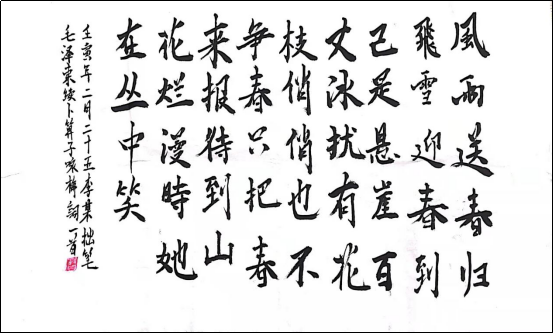 風雨送春归
飛雪迎春到
已是悬崖百
丈冰犹有花
枝俏俏也不
争春只把春
来报待到山
花烂漫時她
在丛中笑
壬寅年二月二十五李某拙笔
毛泽東卜算子咏梅詞一首